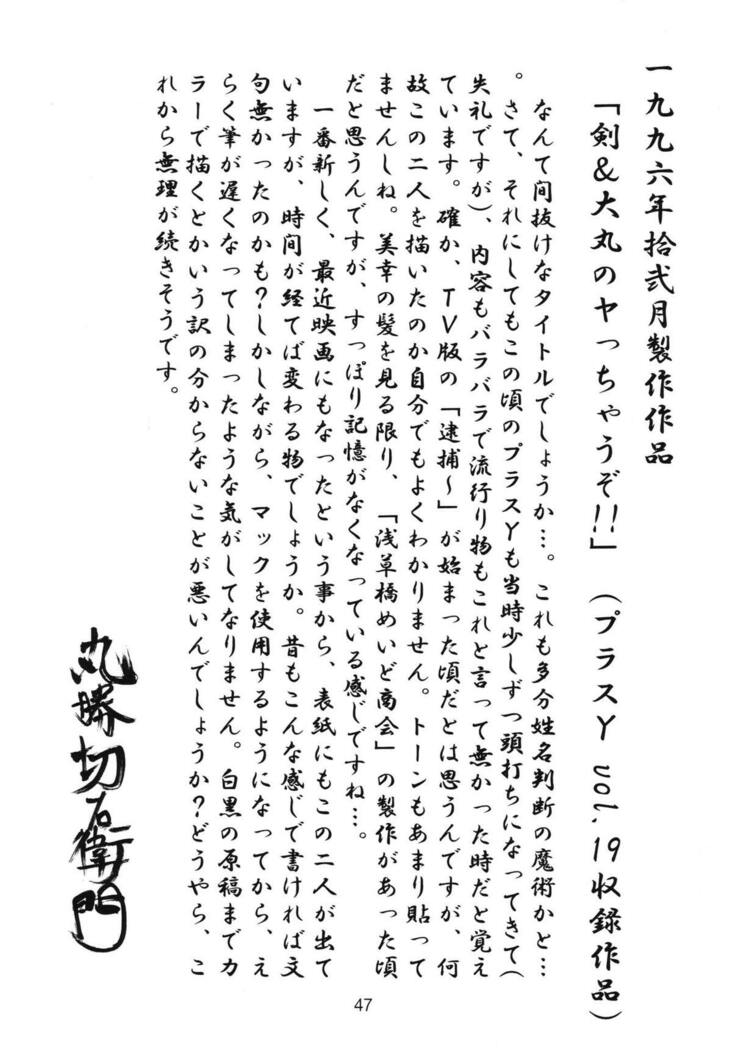 一九九六年拾弐月製作作品
「剣&大丸のヤっちゃうぞ!!」　(プラスY vol.19収録作品)
なんて間抜けなタイトルでしょうか…。これも多分姓名判断の魔術かと…
。さて、それにしてもこの頃のプラスYも当時少しずつ頭打ちになってきて(
失礼ですが)、内容もバラバラで流行り物もこれと言って無かった時だと覚え
ています。確か、TV版の「逮捕~」が始まった頃だとは思うんですが、何
故この二人を描いたのか自分でもよくわかりません。トーンもあまり貼って
ませんしね。美幸の髪を見る限り、「浅草橋めいど商会」の製作があった頃
だと思うんですが、すっぽり記憶がなくなっている感じですね…。
一番新しく、最近映画にもなったという事から、表紙にもこの二人が出て
いますが、時間が経てば変わる物でしょうか。昔もこんな感じで書ければ文
句無かったのかも?しかしながら、マックを使用するようになってから、え
らく筆が遅くなってしまったような気がしてなりません。白黒の原稿までカ
ラーで描くとかいう訳の分からないことが悪いんでしょうか?どうやら、こ
れから無理が続きそうです。
丸勝切右衛門
47